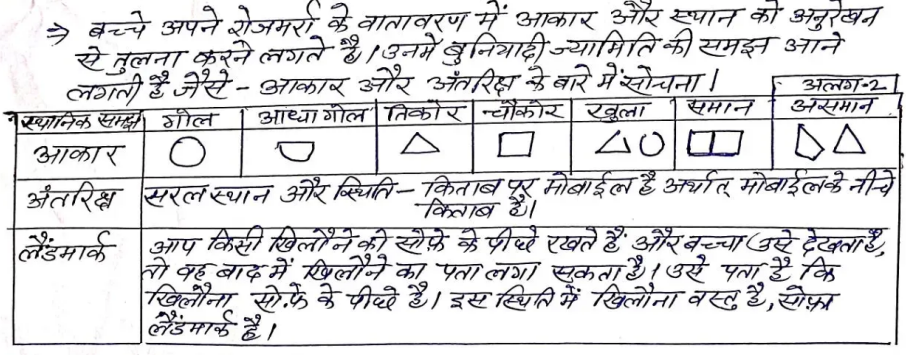 ⇒ बच्चे अपने रोजमर्रा के वातावरण में आकार और स्थान को अनुरेखन
से तुलना करने लगते है। उनमे बुनियादी ज्यामिति की समझ आने
लगती है जैसे - आकार और अंतरिक्ष के बारे में सोचना।
अलग-2
स्थानिक समझ गोल आधा गोल तिकोर चौकोर खुला समान असमान
आकार
अंतरिक्ष सरल स्थान और स्थिति - किताब पर मोबाईल है अर्थात् मोबाईल के नीचे
किताब है।
लैंडमार्क आप किसी खिलौने को सोफ़े के पीछे रखते हैं और बच्चा उसे देखता है,
तो वह बाद में खिलौने का पता लगा सकता है। उसे पता है कि
खिलौना सोफ़े के पीछे है। इस स्थिति में खिलौना वस्तु है, सोफ़ा
लैंडमार्क है।